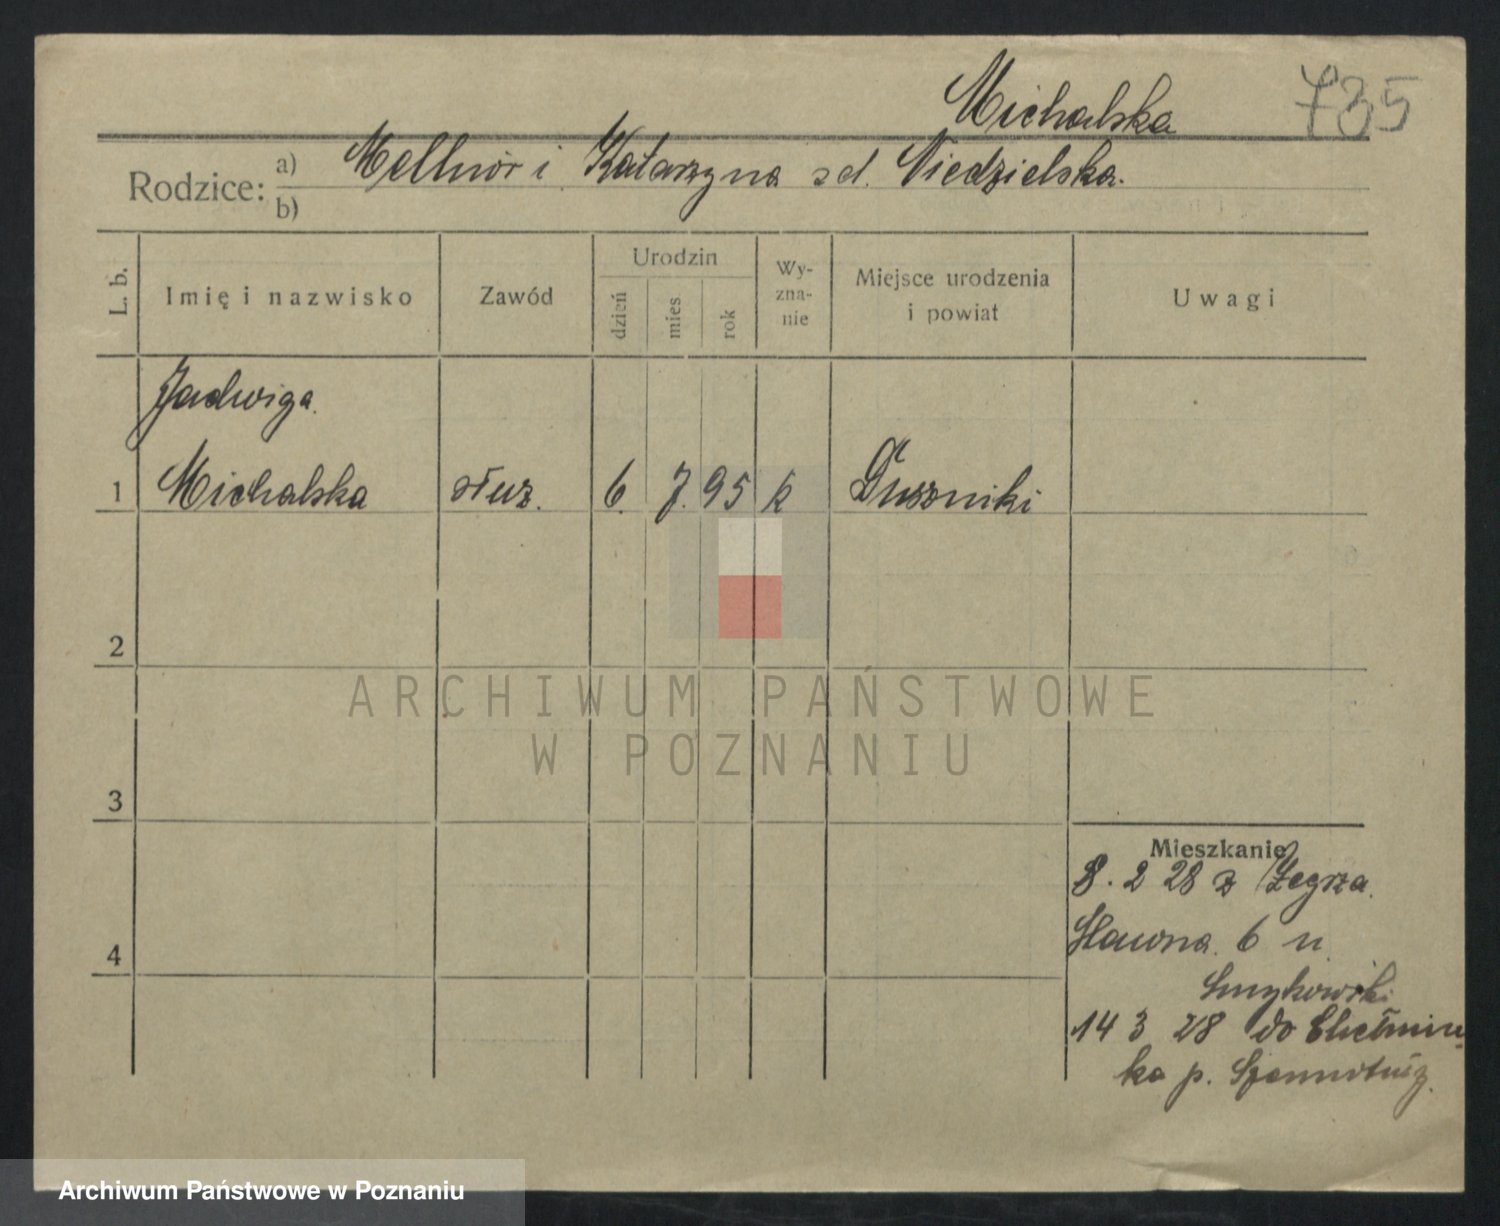 Michalska 735
Rodzice: a) Melhior i Katarzyna zd. Niedzielska.
b)
L. b. Imię i nazwisko Zawód Urodzin dzień mies rok Wyznanie Miejsce urodzenia i powiat Uwagi
Jadwiga
1 Michalska służ. 6. 7. 95 k Duszniki
2
ARCHIWUM PAŃSTWOWE
W POZNANIU
3
Mieszkanie
8. 2 28 z Zegrza.
4 Sławna 6 u
14 3 28 do Chełmin-
ka p. Szamotuły.
Archiwum Państwowe w Poznaniu